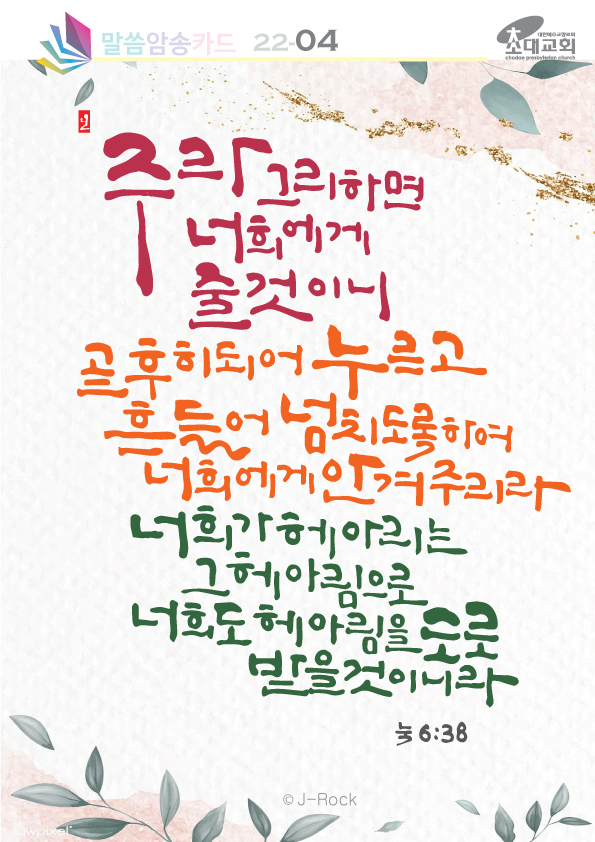 말씀암송카드 22-04
대한예수교장로회
초대교회
chodae presbyterian church
주라 그리하면
너희에게
줄 것이니
곧 후히 되어 누르고
흔들어 넘치도록 하여
너희에게 안겨 주리라
너희가 헤아리는
그 헤아림으로
너희도 헤아림을 도로
받을 것이니라
눅 6:38
© J-Rock
rawpixel